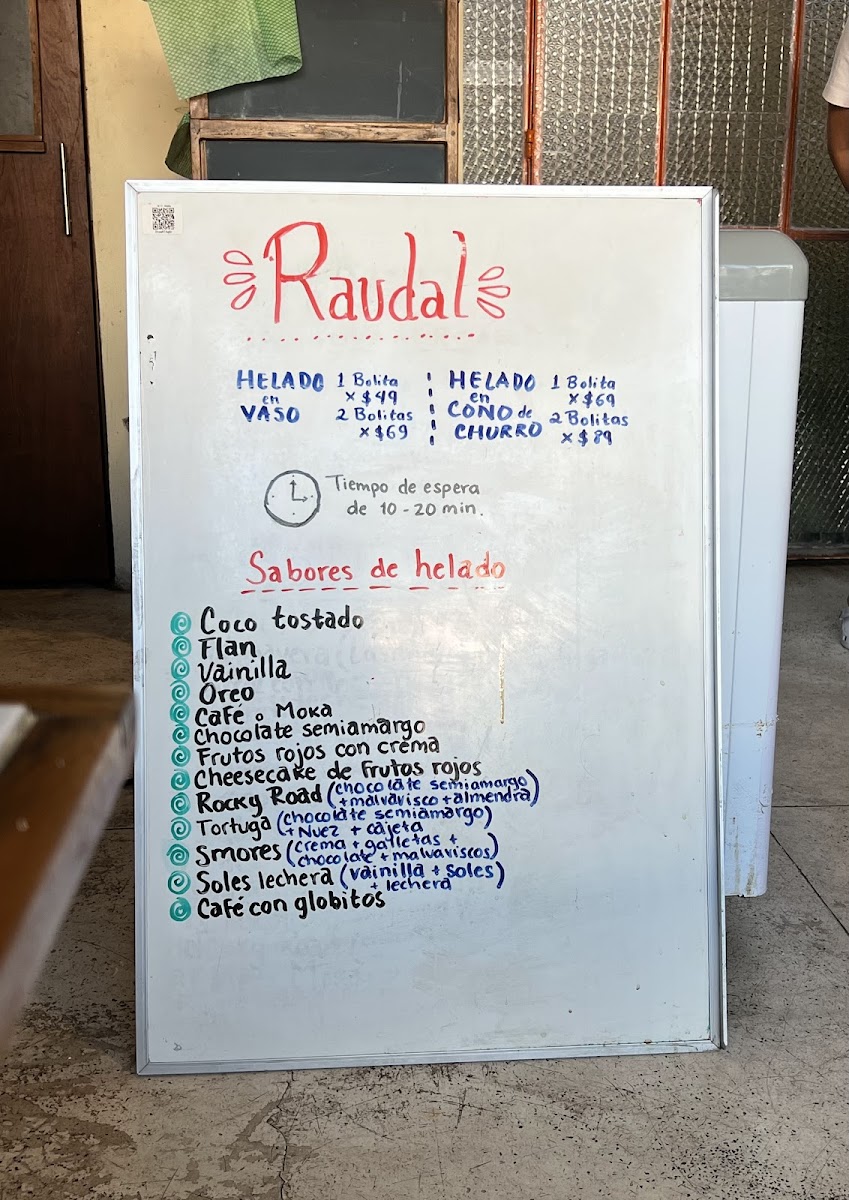 Raudal
HELADO en VASO
1 Bolita x $49
2 Bolitas x $69
HELADO en CONO de CHURRO
1 Bolita x $69
2 Bolitas x $89
Tiempo de espera
de 10 - 20 min.
Sabores de helado
Coco tostado
Flan
Vainilla
Oreo
Café o Moka
Chocolate semiamargo
Frutos rojos con crema
Cheesecake de Frutos rojos
Rocky Road (chocolate semiamargo
+malvavisco+almendra)
Tortuga (chocolate semiamargo)
+ Nuez + cajeta
Smores (crema + galletas +
chocolate + malvaviscos)
Soles lechera (vainilla + Soles)
+ lechera
Café con globitos